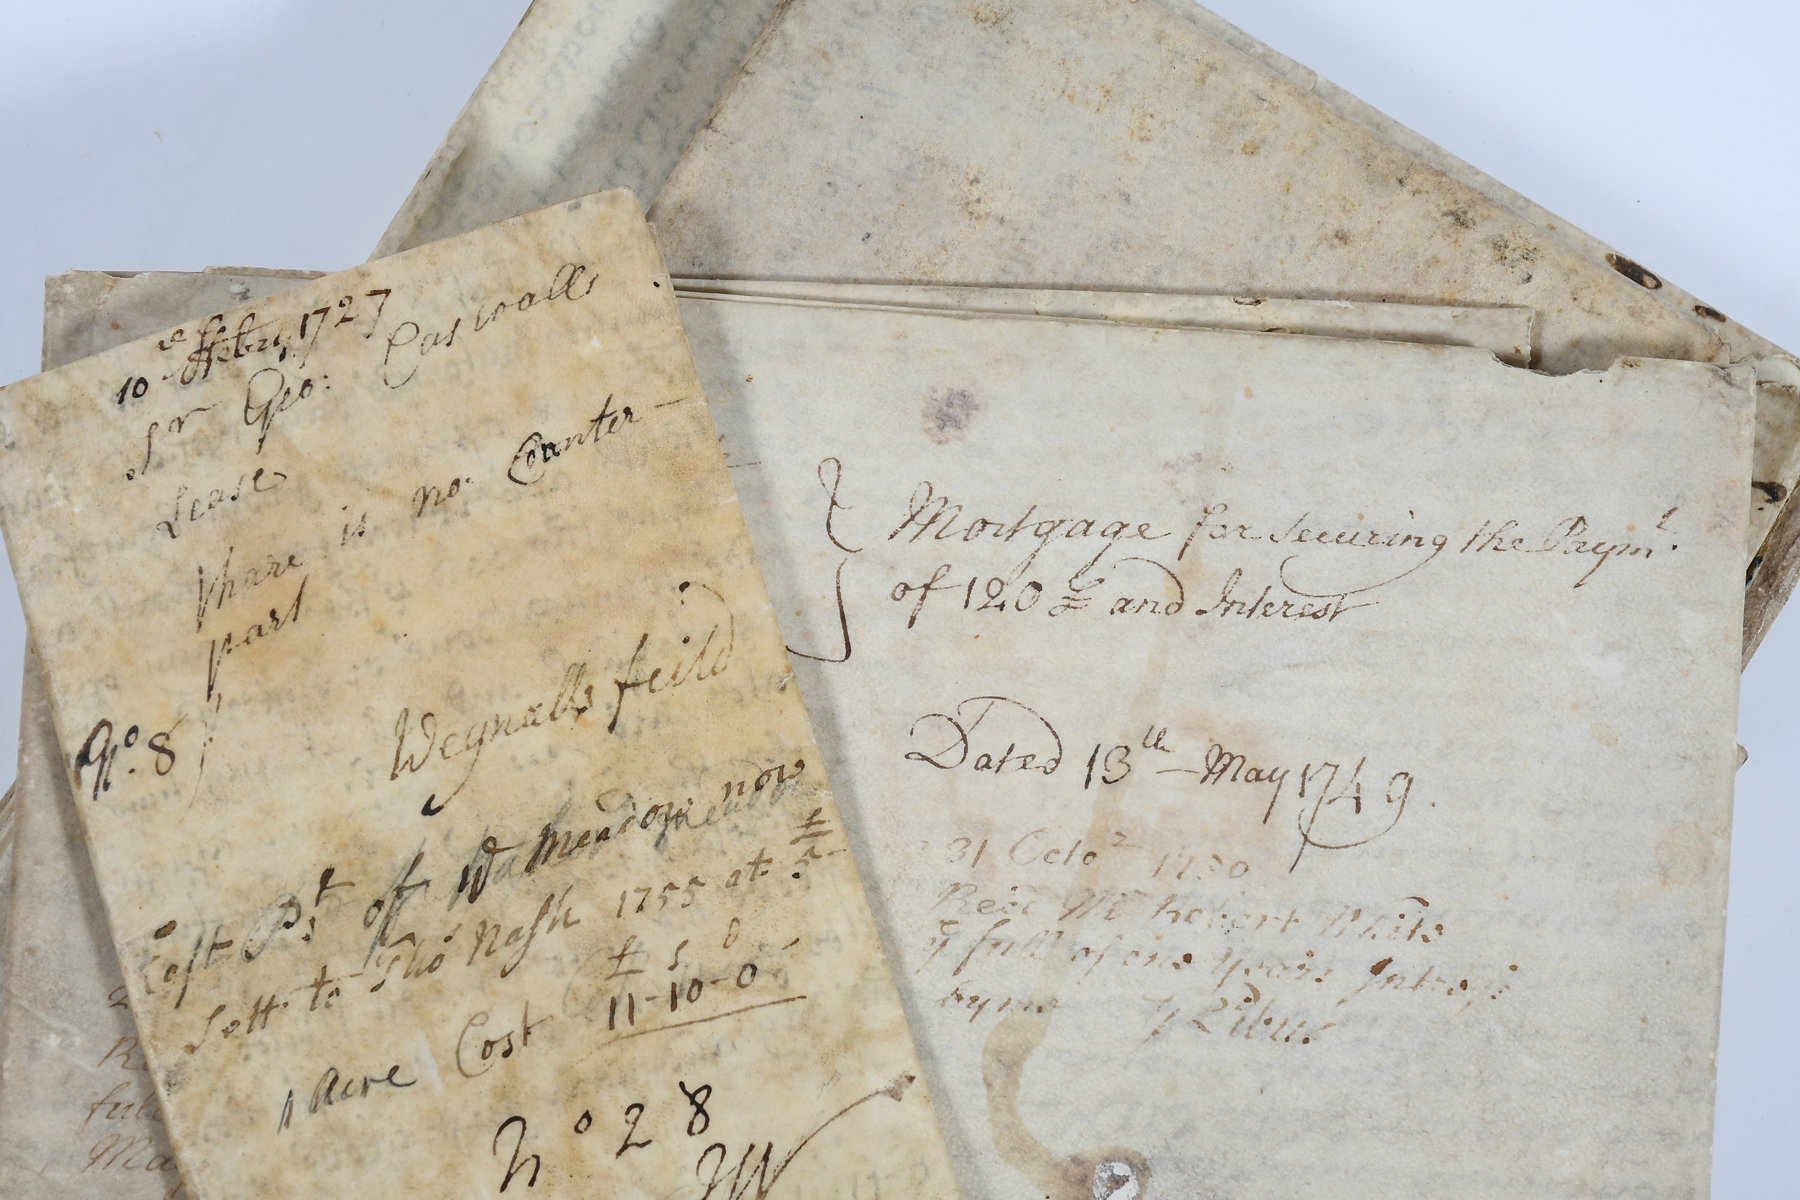 10th ffebry 1727
Sr Geo: Caswalls
Lease
thare is no Counter-
part
No. 8
Wegnalls feild
East Pt: off Wa Meadow now
Sett to Tho: Nash 1755 at £5-
£ s d
1 Acre Cost 11-10-0
No 28
JW
Mortgage for securing the Paymt.
of 120£ and Interest
Dated 13th May 1749.
31 Octo 1750
Recd Mr Robert White
ye full of one years Intrest
by me
R
full
Ma